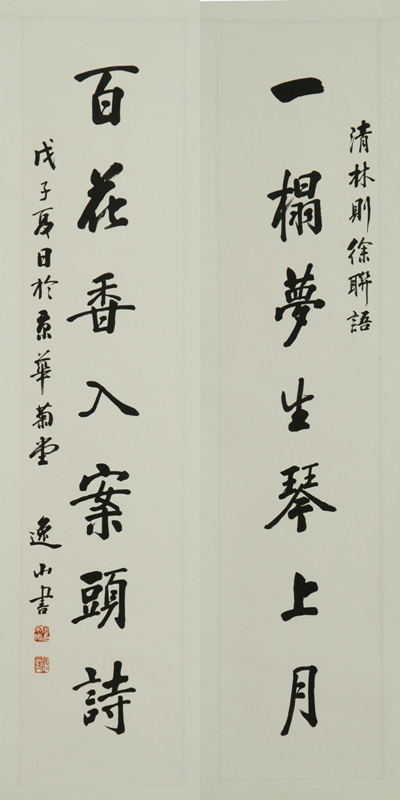 清林則徐聯語
一榻夢生琴上月
百花香入案頭詩
戊子夏日於京華菊堂 逸山書